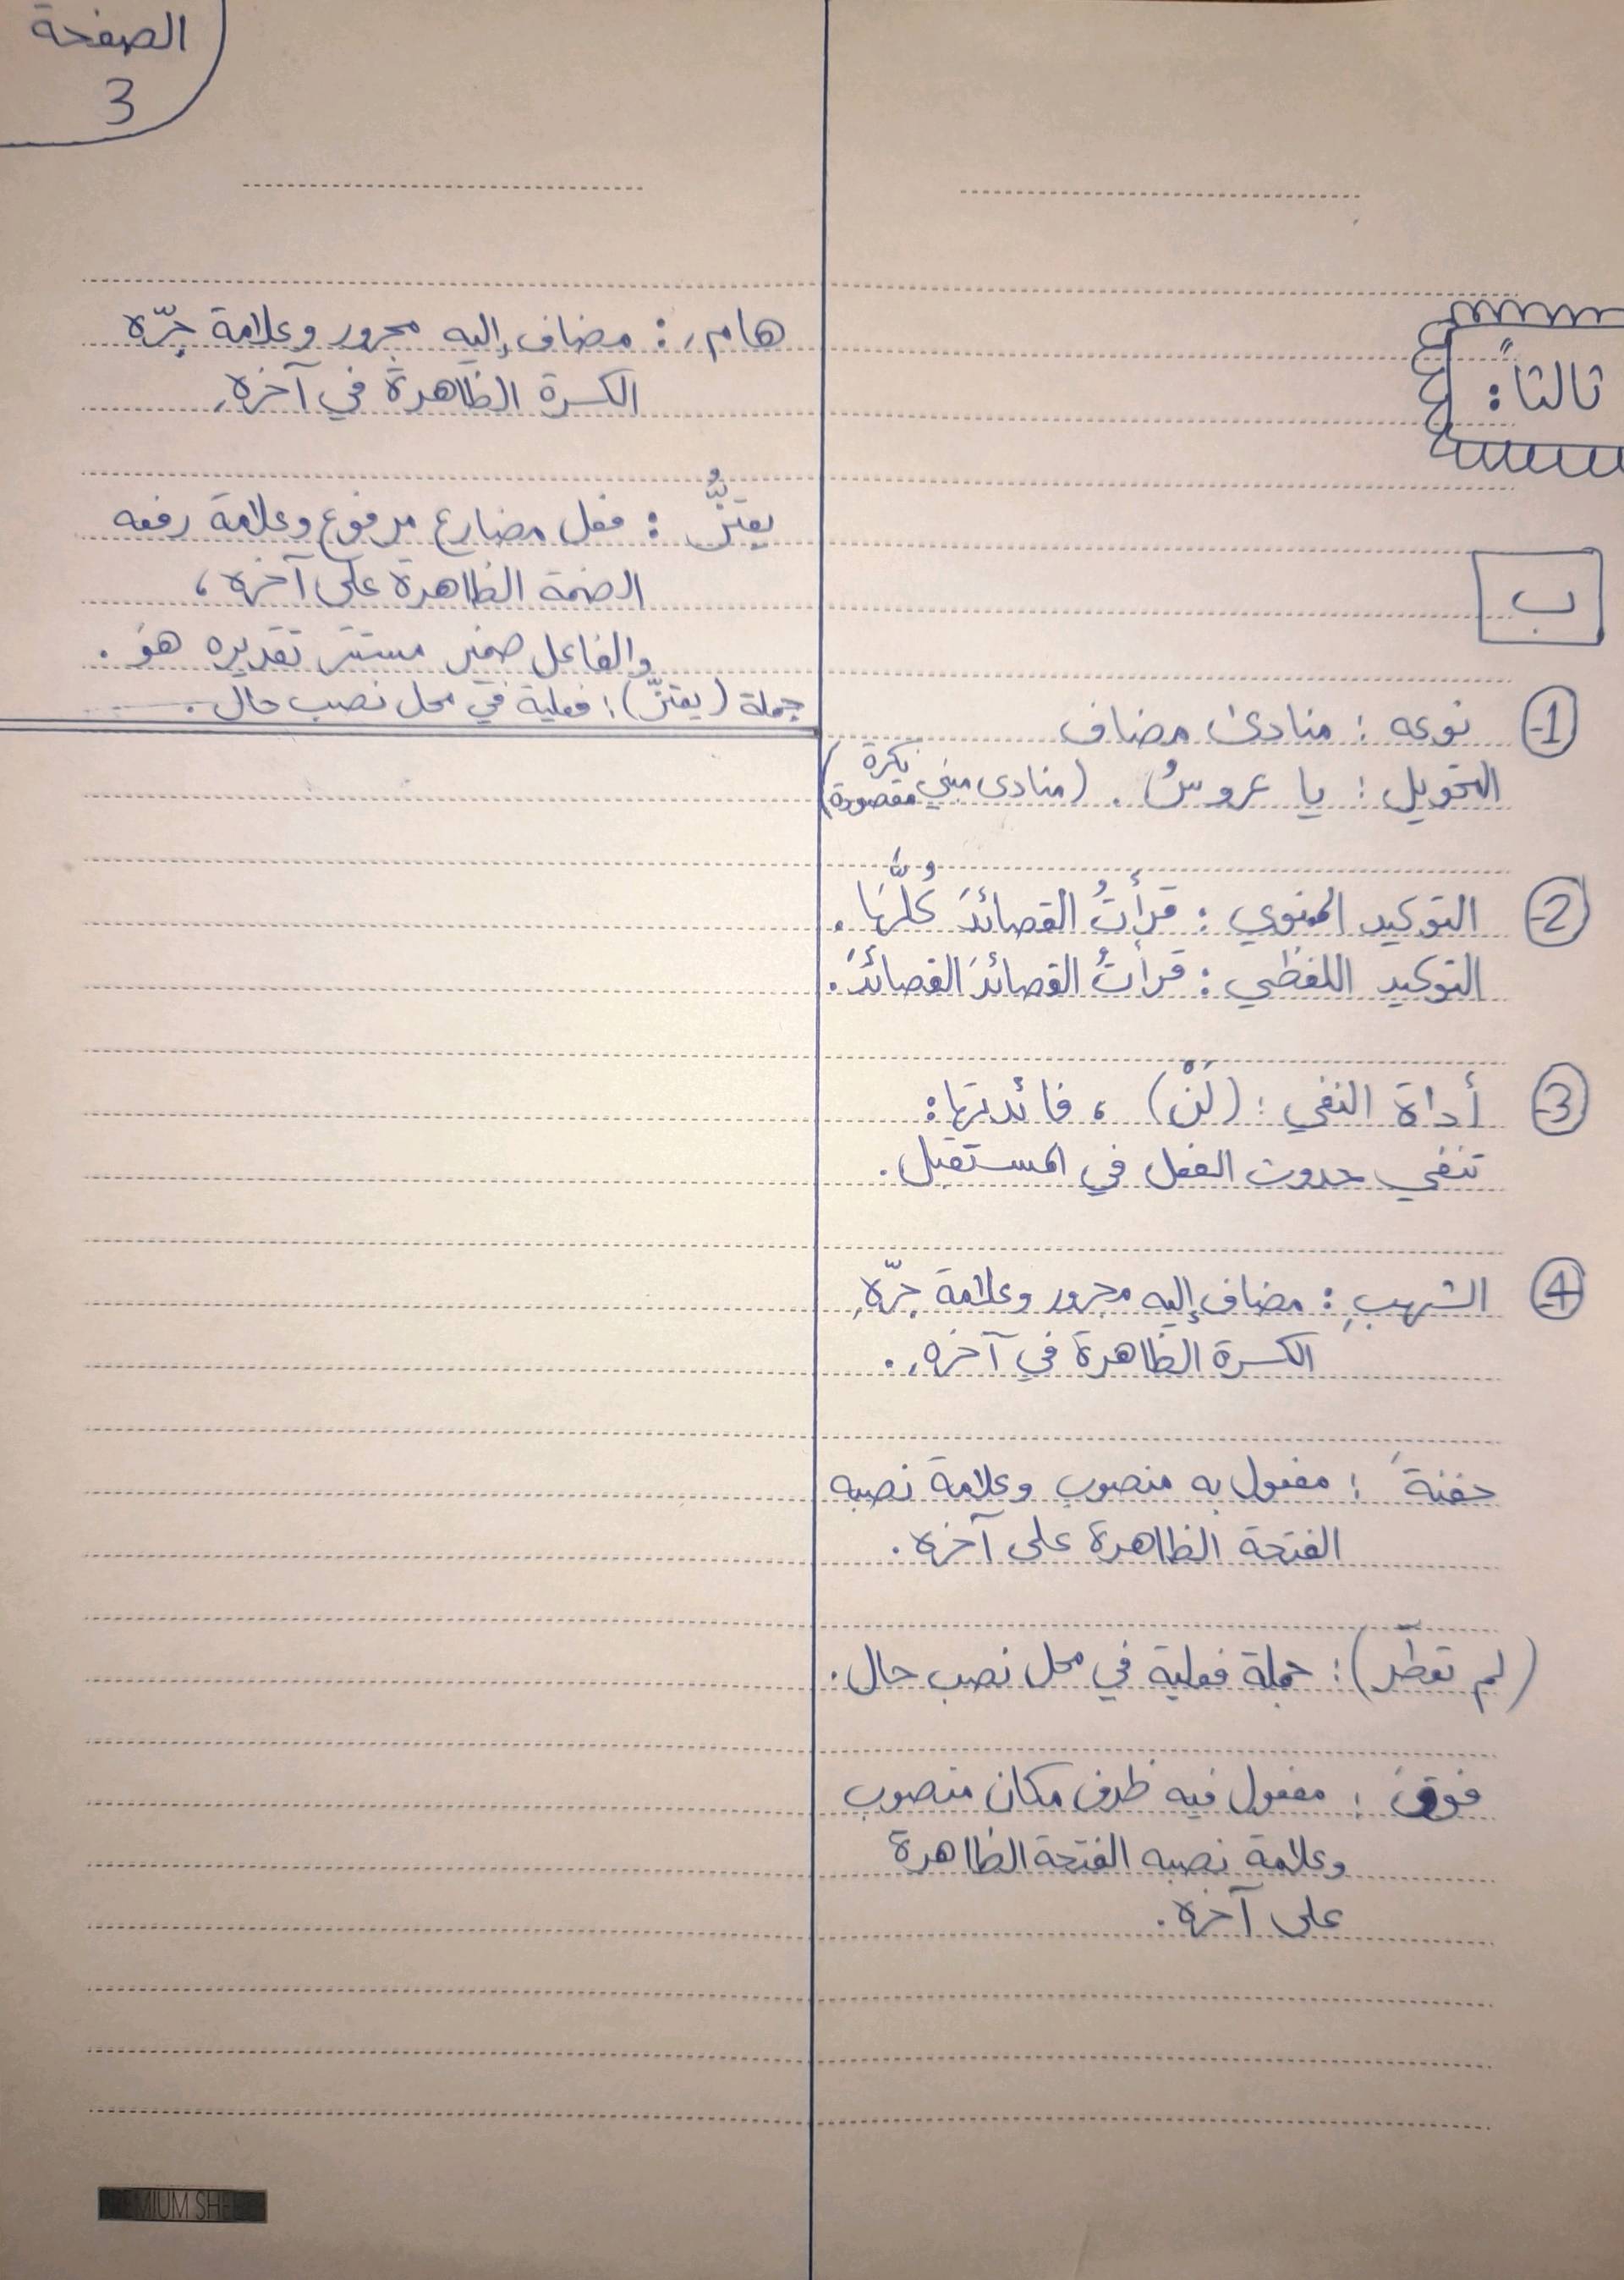 الصفحة
3
ثالثاً:
ب
1- نوعه : منادىً مضاف
التحويل : يا عروسُ . (منادى مبني نكرة مقصودة)
2- التوكيد المعنوي : قرأتُ القصائدَ كُلَّهَا .
التوكيد اللفظي : قرأتُ القصائدَ القصائدَ .
3- أداة النفي : (لَنْ) ، فائدتها :
تنفي حدوث الفعل في المستقبل .
4- الشهبِ : مضاف إليه مجرور وعلامة جرّهِ
الكسرة الظاهرة في آخرهِ .
حفنةَ : مفعول به منصوب وعلامة نصبه
الفتحة الظاهرة على آخره .
(لم تعطّر) : جملة فعلية في محل نصب حال .
فوقَ : مفعول فيه ظرف مكان منصوب
وعلامة نصبه الفتحة الظاهرة
على آخره .
هامِ : مضاف إليه مجرور وعلامة جرّه
الكسرة الظاهرة في آخرهِ
يفترُّ : فعل مضارع مرفوع وعلامة رفعه
الضمة الظاهرة على آخره ،
والفاعل ضمير مستتر تقديره هو .
جملة (يفترّ) : فعلية في محل نصب حال .